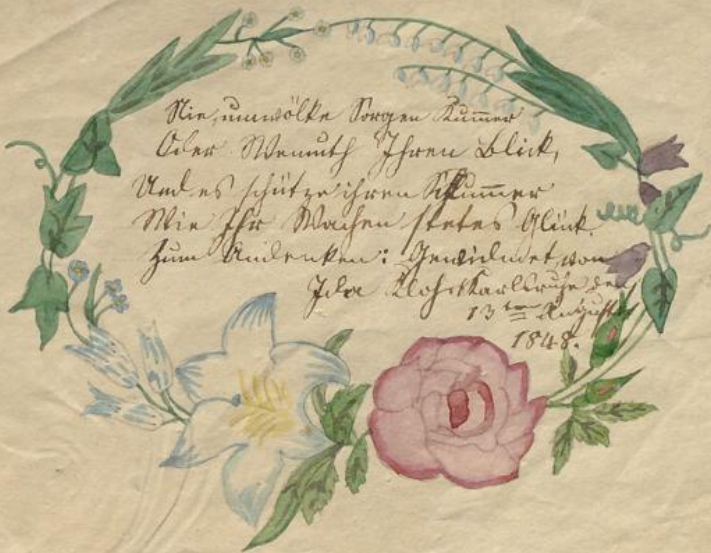 Nie umwölke Sorgen Kummer
Oder Wemuth Ihren Blick,
Und es schütze ihren Schlummer
Wie Ihr Wachen stetes Glück.
Zum Andenken: Gewidmet von
Ida Karlsruhe den
13ten August
1848.